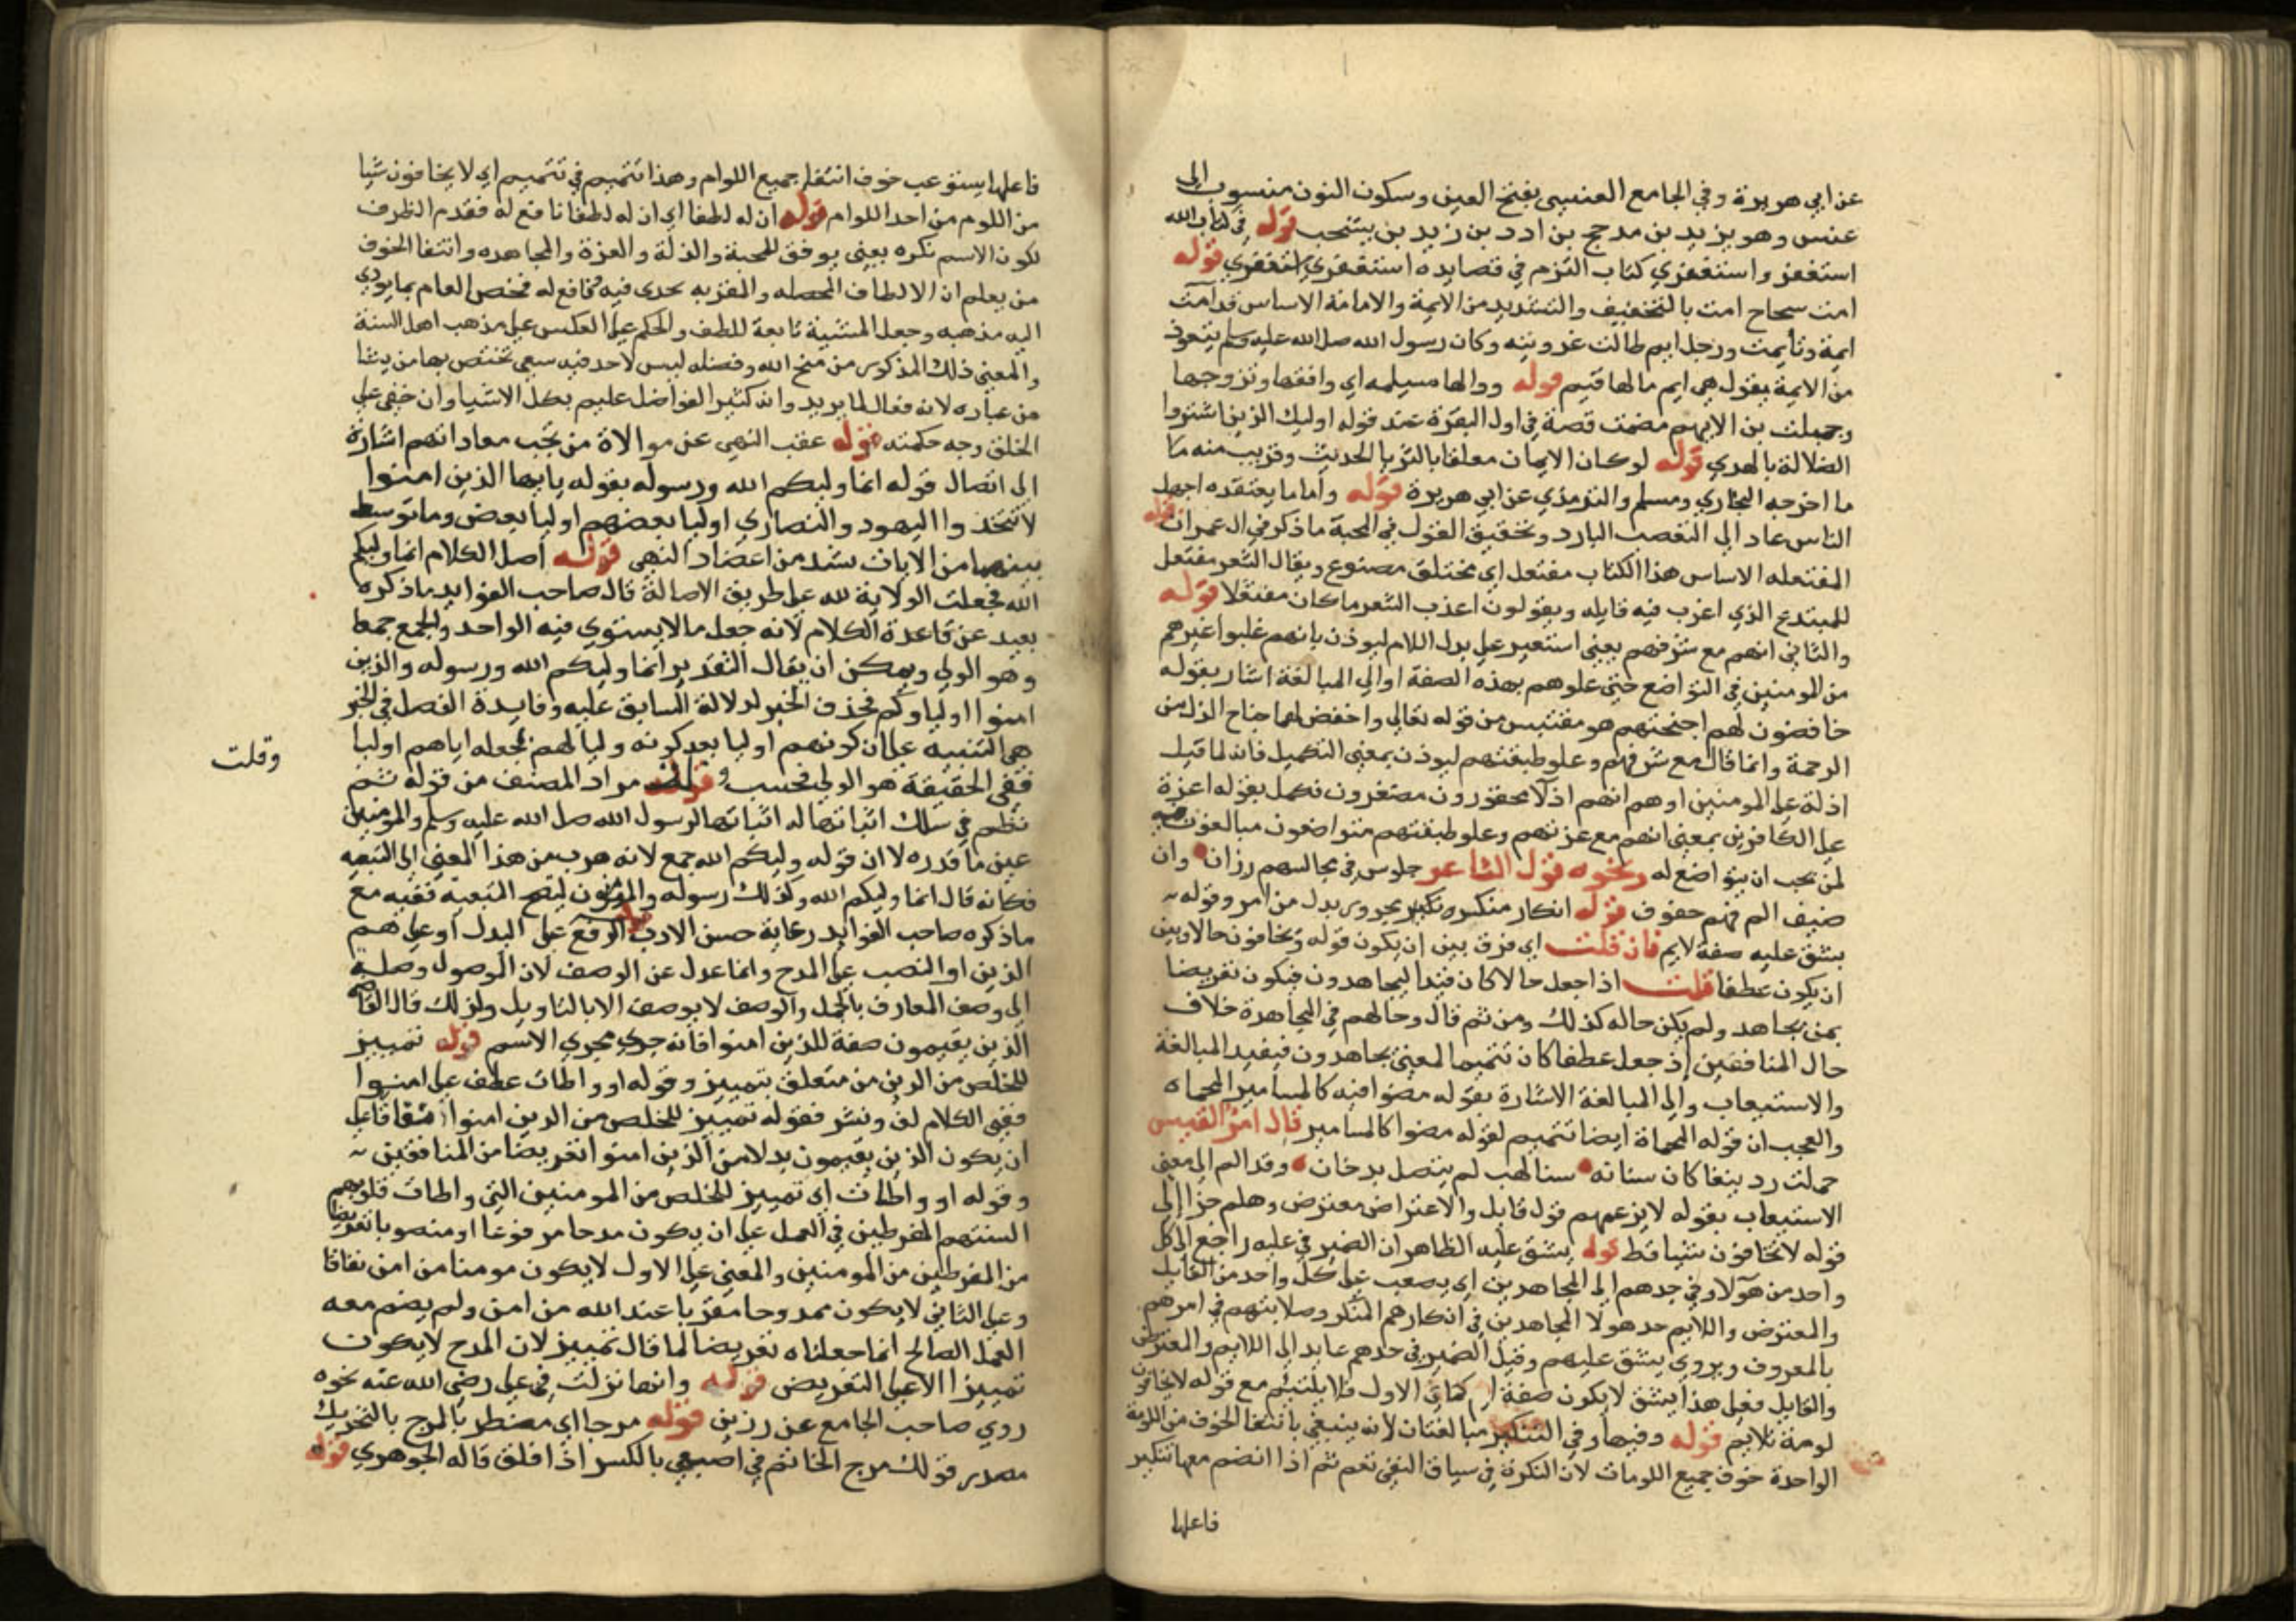 عن ابي هريرة وفي الجامع العنسي بفتح العين وسكون النون منسوب الى
عنس وهو يزيد بن مدحج بن ادد بن زيد بن يشجب قوله في كتاب الله
استغفر واستغفري كتاب التزم في قصايده استغفري استغفري قوله
امت سجاح امت بالتخفيف والتشديد من الايمة والامامة الاساس قد آمت
ايمة وتأيمت ورجل ايم طالت عزوبته وكان رسول الله صلى الله عليه وسلم يتعوذ
من الايمة يقول هي ايم مالها قيم قوله ووالها مسيلمه اي وافقها وتزوجها
وجبلت بن الايهم مضمت قصة في اول البقرة عند قوله اوليك الذين اشتروا
الضلالة بالهدي قوله لو كان الايمان معلقا بالثريا الحديث وقريب منه ما
ما اخرجه البخاري ومسلم والترمذي عن ابي هريرة قوله واما ما يعتقده اجهل
الناس عاد الى التعصب البارد وتحقيق القول في المحبة ما ذكر في ال عمران قوله
المفتعله الاساس هذا الكتاب مفتعل اي مختلق مصنوع ويقال الشعر مفتعل
للمبتدع الذي اغرب فيه قايله ويقولون اعذب الشعر ما كان مفتعلا قوله
والثاني انهم مع شرفهم يعني استعير على بدل اللام ليوذن بانهم غلبوا غيرهم
من المومنين في التواضع حتى علوهم بهذه الصفة او الي المبالغة اشار بقوله
خافضون لهم اجنحتهم هو مقتبس من قوله تعالي واخفض لهما جناح الذل من
الرحمة وانما قال مع شرفهم وعلو طبقتهم ليوذن بمعني التكميل فانه لما قيل
اذلة على المومنين اوهم انهم اذلا محقورون مستغرون فكمل بقوله اعزة
على الكافرين بمعني انهم مع عزتهم وعلو طبقتهم متواضعون مبالغون
لمن يجب ان يتواضع له ونحوه قول الشاعر جلوس في مجالسهم رزان وان
ضيف الم فهم خفوف قوله انكار منكر وروي بدل من امر وقوله
يشق عليه صفة لايم فان قلت اي فرق بين ان يكون قوله ويخافون حالا وبين
ان يكون عطفا قلت اذا جعل حالا كان قيدا ليجاهدون فيكون تعريضا
بمن يجاهد ولم يكن حاله كذلك ومن ثم قال وحالهم في المجاهدة خلاف
حال المنافقين اذ جعل عطفا كان تتميما لمعني يجاهدون فيفيد المبالغة
والاستيعاب والي المبالغة الاشارة بقوله مضوا فيه كالمسامير المحماه
والعجب ان قوله المحماة ايضا تتميم لقوله مضوا كالمسامير قال امرؤ القيس
حملت ردينيا كان سنانه سنا لهب لم يتصل بدخان وقد الم الى معني
الاستيعاب بقوله لا يزعهم قول قايل والاعتراض معترض وهلم جرا الى
قوله لا يخافون شيا قط قوله يشق عليه الظاهر ان الضمير في عليه راجع الى كل
واحد من هولاء وفي جدهم الى المجاهدين اي يصعب على كل واحد من القايل
والمعترض واللايم جد هولا المجاهدين في انكارهم المنكر وصلابتهم في امرهم
بالمعروف ويروي يشق عليهم وقيل الضمير في جدهم عايد الى اللايم والمعترض
والقايل فعلى هذا يشق لا يكون صفة كما في الاول فلا يلتئم مع قوله لا يخافون
لومة لايم قوله وفيها وفي التنكير مبالغتان لانه ينبغي بانتفا الخوف من اللومة
الواحدة خوف جميع اللومات لان النكرة في سياق النفي تعم ثم اذا انضم معها تنكير
فاعلها
فاعلها يستوعب خوف انتفا جميع اللوام وهذا تتميم في تتميم اي لا يخافون شيا
من اللوم من احد اللوام قوله ان له لطفا اي ان له لطفا نافع له فقدم الظرف
لكون الاسم نكره يعني يوفق للمحبة والذلة والعزة والمجاهده وانتفا الخوف
من يعلم ان الالطاف المحصله والمقربه تجدي فيه نافع له فخص العام بما يودي
اليه مذهبه وجعل المشية تابعة للطف والحكم على العكس على مذهب اهل السنة
والمعني ذلك المذكور من منح الله وفضله ليس لاحد فيه سعي تختص بها من يشا
من عباده لانه فعال لما يريد وانه كثير الفواضل عليم بكل الاشيا وان خفي على
الخلق وجه حكمته قوله عقب النهي عن موالاة من تجب معاداتهم اشارة
الى اتصال قوله انما وليكم الله ورسوله بقوله يايها الذين امنوا
لا تتخذوا اليهود والنصاري اوليا بعضهم اوليا بعض وما توسط
بينهما من الايات يشد من اعضاد النهي قوله اصل الكلام انما وليكم
الله فجعلت الولاية لله على طريق الاصالة قال صاحب الفوايد ما ذكره
بعيد عن قاعدة الكلام لانه جعل ما لا يستوي فيه الواحد والجمع جمعا
وهو الولي ويمكن ان يقال التقدير انما وليكم الله ورسوله والذين
امنوا اولياوكم فحذف الخبر لدلالة السابق عليه وفايدة الفصل في الخبر
هي التنبيه على ان كونهم اوليا بعد كونه وليا لهم بجعله اياهم اوليا
ففي الحقيقة هو الولي فحسب وقلت مراد المصنف من قوله ثم
وقلت
نظم في سلك اثباتها له اثباتها لرسول الله صلى الله عليه وسلم والمومنين
عين ما قدره لا ان قوله وليكم الله جمع لانه هرب من هذا المعني الى التبعيه
فكانه قال انما وليكم الله وكذلك رسوله والمومنون ليتم التبعية ففيه مع
ما ذكره صاحب الفوايد رعاية حسن الادب قوله الرفع على البدل او على هم
الذين او النصب على المدح وانما عدل عن الوصف لان الموصول وصلة
الى وصف المعارف بالجمل والوصف لا يوصف الا بالتاويل ولذلك قال القاضي
الذين يقيمون صفة للذين امنوا فانه جري مجري الاسم قوله تمييز
للخلص من الذين من متعلق بتمييز وقوله او واطات عطف على امنوا
ففي الكلام لف ونشر فقوله تمييز للخلص من الذين امنوا نفاقا على
ان يكون الذين يقيمون بدلا من الذين امنوا تعريضا من المنافقين
وقوله او واطات اي تمييز للخلص من المومنين التي واطات قلوبهم
السنتهم المفرطين في العمل على ان يكون مدحا مرفوعا او منصوبا تعريضا
من المفرطين من المومنين والمعني على الاول لا يكون مومنا من امن نفاقا
وعلى الثاني لا يكون ممدوحا مقربا عند الله من امن ولم يضم معه
العمل الصالح انما جعلناه تعريضا لما قال تمييز لان المدح لا يكون
تمييزا الا على التعريض قوله وانها نزلت في علي رضي الله عنه نحوه
روي صاحب الجامع عن رزين قوله مرجا اي مضطربا المرج بالتحريك
مصدر قولك مرج الخاتم في اصبعي بالكسر اذا قلق قاله الجوهري قوله